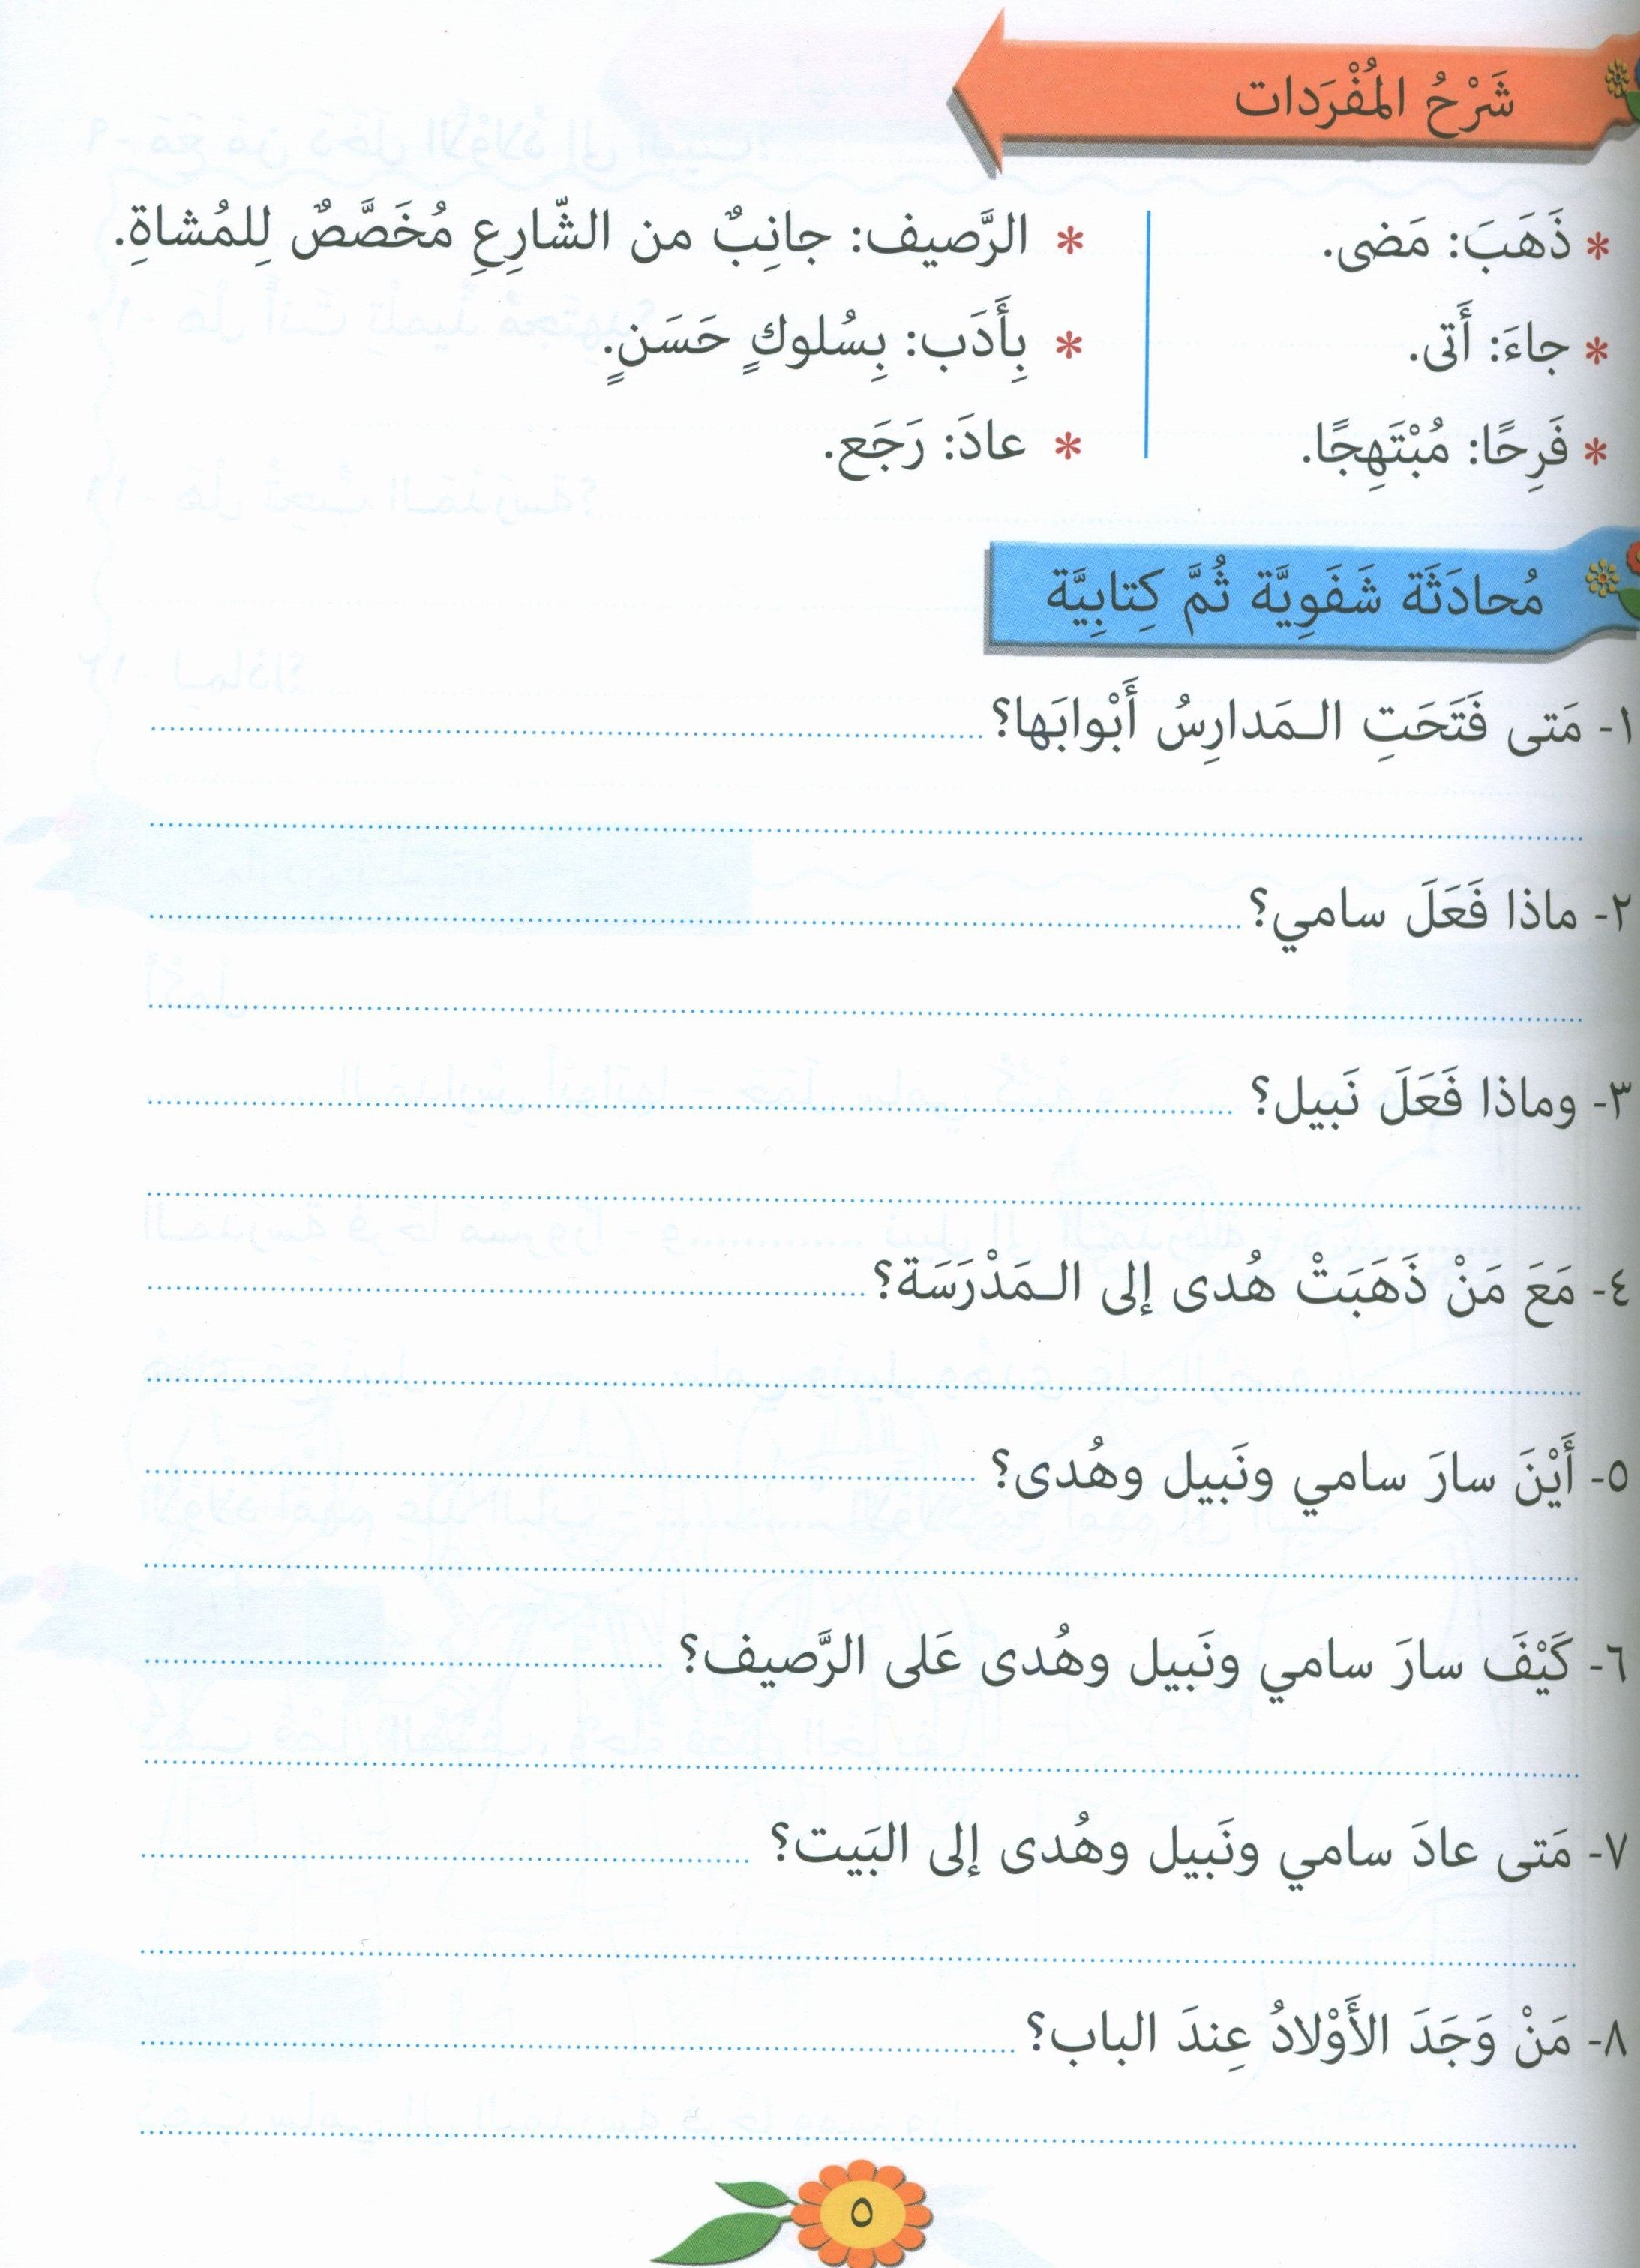 شَرْحُ المُفْرَدات
* ذَهَبَ: مَضى.
* جاءَ: أَتى.
* فَرِحًا: مُبْتَهِجًا.
* الرَّصيف: جانِبٌ من الشّارِعِ مُخَصَّصٌ لِلمُشاةِ.
* بِأَدَب: بِسُلوكٍ حَسَنٍ.
* عادَ: رَجَع.
مُحادَثَة شَفَوِيَّة ثُمَّ كِتابِيَّة
١- مَتى فَتَحَتِ الـمَدارِسُ أَبْوابَها؟
٢- ماذا فَعَلَ سامي؟
٣- وماذا فَعَلَ نَبيل؟
٤- مَعَ مَنْ ذَهَبَتْ هُدى إلى الـمَدْرَسَة؟
٥- أَيْنَ سارَ سامي ونَبيل وهُدى؟
٦- كَيْفَ سارَ سامي ونَبيل وهُدى عَلى الرَّصيف؟
٧- مَتى عادَ سامي ونَبيل وهُدى إلى البَيت؟
٨- مَنْ وَجَدَ الأَوْلادُ عِندَ الباب؟
٥